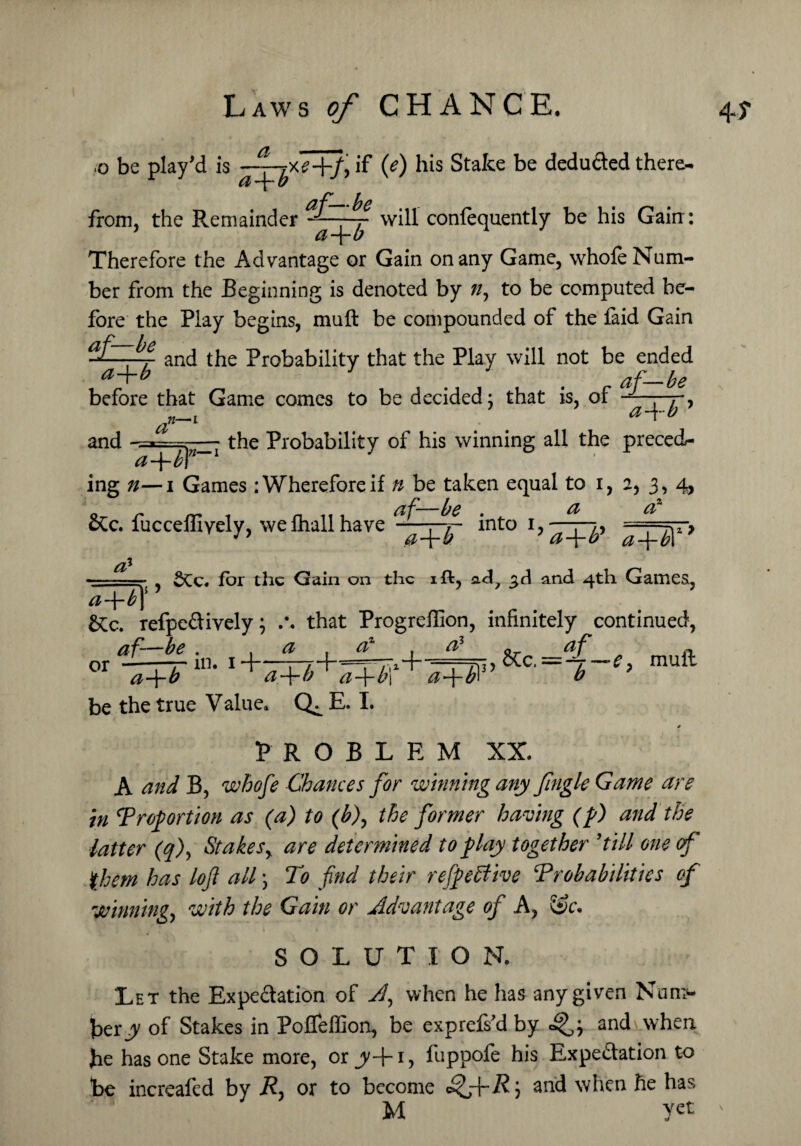 Laws of CHANCE. 45
o be play'd is a/(a+b)×e+f, if (e) his Stake be deducted there-
from, the Remainder (af—be)/(a+b) will conſequently be his Gain:
Therefore the Advantage or Gain on any Game, whoſe Num-
ber from the Beginning is denoted by n, to be computed be-
fore the Play begins, muſt be compounded of the ſaid Gain
(af—be)/(a+b) and the Probability that the Play will not be ended
before that Game comes to be decided; that is, of (af—be)/(a+b),
and a^(n—1)/(a+b)^(n—1) the Probability of his winning all the preced-
ing n—1 Games: Wherefore if n be taken equal to 1, 2, 3, 4,
&c. ſucceſſively, we ſhall have (af—be)/(a+b) into 1, a/(a+b), a²/(a+b)²,
a³/(a+b)³, &c. for the Gain on the 1ſt, 2d, 3d and 4th Games,
&c. reſpectively; ∴ that Progreſſion, infinitely continued,
or (af—be)/(a+b) in. 1+a/(a+b)+a²/(a+b)²+a³/(a+b)³, &c.=af/b—e, muſt
be the true Value. Q. E. I.
PROBLEM XX.
A and B, whoſe Chances for winning any ſingle Game are
in Proportion as (a) to (b), the former having (p) and the
latter (q), Stakes, are determined to play together 'till one of
them has loſt all; To find their reſpective Probabilities of
winning, with the Gain or Advantage of A, &c.
SOLUTION.
LET the Expectation of A, when he has any given Num-
ber y of Stakes in Poſſeſſion, be expreſs'd by Q; and when
he has one Stake more, or y+1, ſuppoſe his Expectation to
be increaſed by R, or to become Q+R; and when he has
M yet